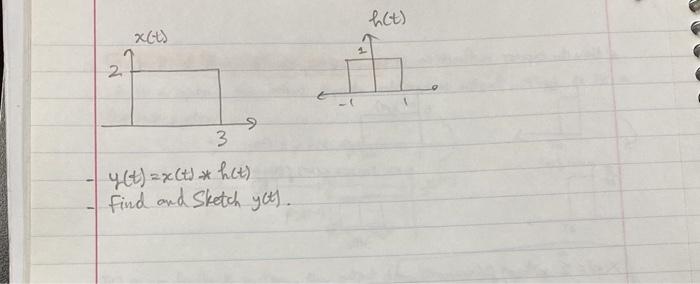 x(t)
h(t)
2
1
3
-1
1
- y(t) = x(t) * h(t)
- Find and Sketch y(t).